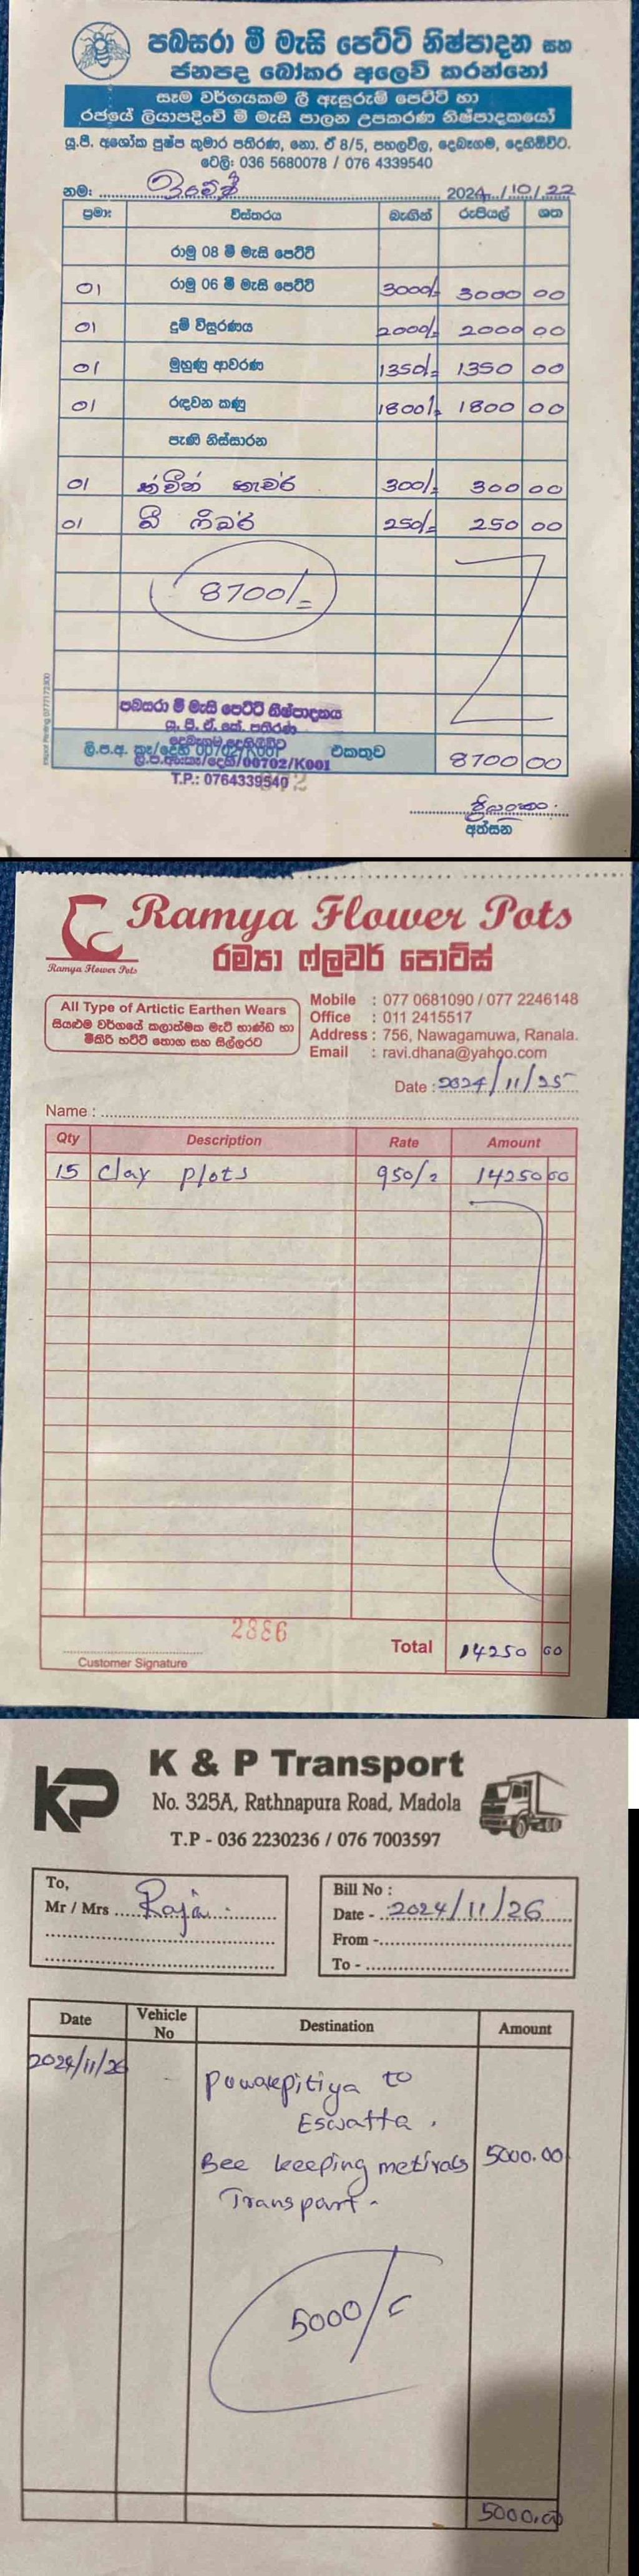 පබසරා මී මැසි පෙට්ටි නිෂ්පාදන සහ
ජනපද බෝකර අලෙවි කරන්නෝ
සෑම වර්ගයකම ලී ඇසුරුම් පෙට්ටි හා
රජයේ ලියාපදිංචි මී මැසි පාලන උපකරණ නිෂ්පාදකයෝ
යූ.පී. අශෝක පුෂ්ප කුමාර පතිරණ, නො. ඒ 8/5, පහලවිල, දෙබෑගම, දෙහිඕවිට.
ටෙලි: 036 5680078 / 076 4339540
නම: 2024/10/22
ප්‍රමා: විස්තරය බැගින් රුපියල් ශත
රාමු 08 මී මැසි පෙට්ටි
01 රාමු 06 මී මැසි පෙට්ටි 3000/= 3000 00
01 දුම් විසුරණය 2000/= 2000 00
01 මුහුණු ආවරණ 1350/= 1350 00
01 රඳවන කණු 1800/= 1800 00
පැණි නිස්සාරන
01 ක්වීන් කැවර් 300/= 300 00
01 බී ෆීඩර් 250/= 250 00
8700/=
පබසරා මී මැසි පෙට්ටි නිෂ්පාදනය
යූ. පී. ඒ. කේ. පතිරණ
එකතුව 8700 00
ලි.ප.අ. කෑ/දෙහි/00702/K001
T.P.: 0764339540
අත්සන
Ramya Flower Pots
රම්‍යා ෆ්ලවර් පොට්ස්
Ramya Flower Pots
All Type of Artictic Earthen Wears
සියළුම වර්ගයේ කලාත්මක මැටි භාණ්ඩ හා
මීකිරි හට්ටි තොග සහ සිල්ලරට
Mobile : 077 0681090 / 077 2246148
Office : 011 2415517
Address : 756, Nawagamuwa, Ranala.
Email : ravi.dhana@yahoo.com
Date : 2024/11/25
Name :
Qty Description Rate Amount
15 clay plots 950/= 14250 00
2886
Total 14250 00
Customer Signature
KP
K & P Transport
No. 325A, Rathnapura Road, Madola
T.P - 036 2230236 / 076 7003597
To,
Mr / Mrs Raja.
Bill No :
Date - 2024/11/26
From -
To -
Date Vehicle No Destination Amount
2024/11/26 Puwakpitiya to
Eswatta.
Bee keeping metirals 5000.00
Transpart.
5000/=
5000.00